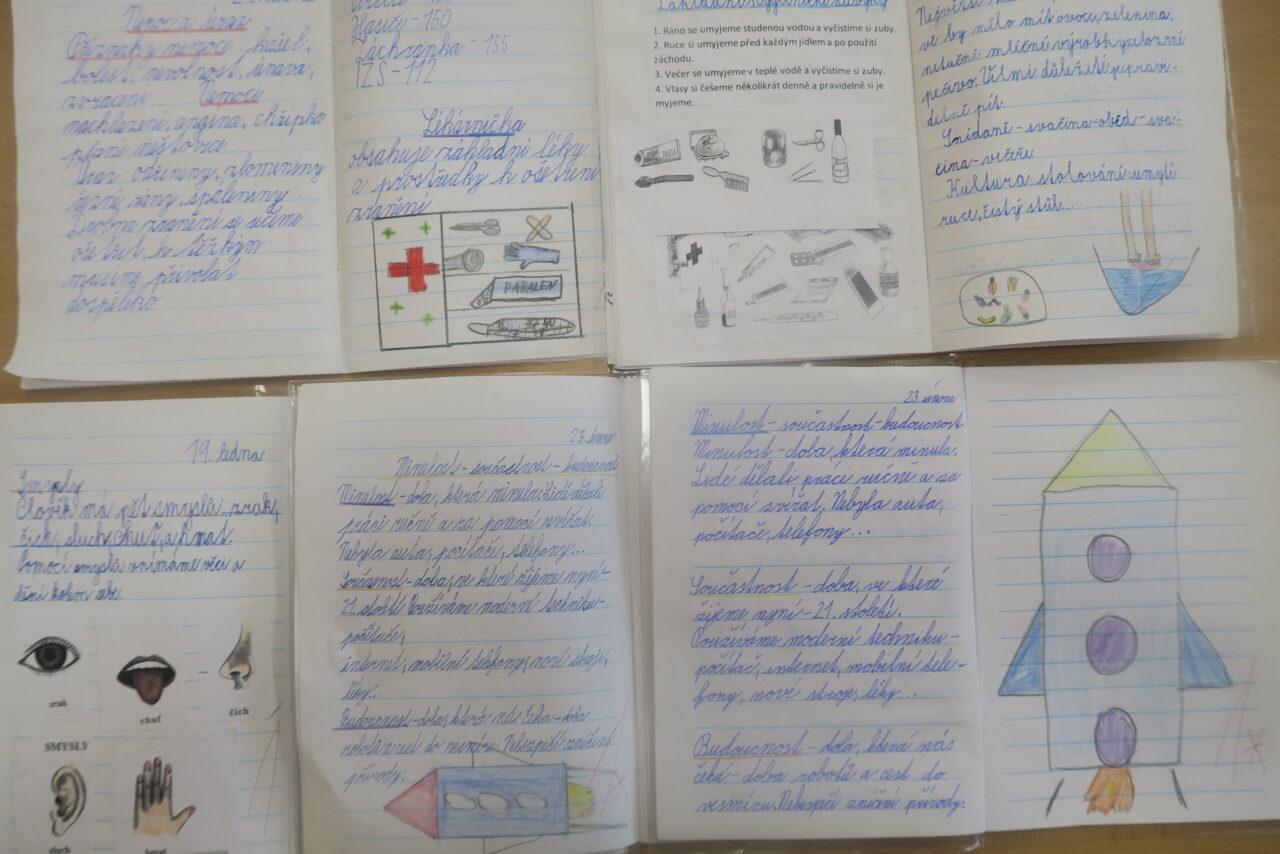 Nemoc a úraz
Příznaky nemoci kašel,
bolest, nevolnost, únava,
zvracení Nemoci
nachlazení, angína, chřipka
plané neštovice...
Úraz odřeniny, zlomeniny
řezné rány, spáleniny.
Drobná zranění se učíme
ošetřit, k těžkým
musíme přivolat
dospělého
Hasiči - 150
Záchranka - 155
IZS - 112
Lékárnička
obsahuje základní léky
a prostředky k ošetření
zranění
PARALEN
Základní hygienické návyky
1. Ráno se umyjeme studenou vodou a vyčistíme si zuby.
2. Ruce si umyjeme před každým jídlem a po použití
záchodu.
3. Večer se umyjeme v teplé vodě a vyčistíme si zuby.
4. Vlasy si češeme několikrát denně a pravidelně si je
myjeme.
PASTA
vě by mělo mít ovoce, zelenina,
netučné mléčné výrobky, celozrné
pečivo. Velmi důležité je pravi-
delně pít.
Snídaně - svačina - oběd - sva-
čina - večeře
Kultura stolování - umyté
ruce, čistý stůl...
19. ledna
Smysly
Člověk má pět smyslů: zrak,
čich, sluch, chuť, a hmat.
Pomocí smyslů vnímáme věci a
dění kolem sebe.
zrak
chuť
čich
SMYSLY
sluch
hmat
23. února
Minulost - součastnost - budoucnost
Minulost - doba, která minula. Lidé dělali
práci ručně a za pomoci zvířat.
Nebyla auta, počítače, telefony...
Současnost - doba, ve které žijeme nyní -
21. století Používáme moderní techniku -
počítače,
internet, mobilní telefony, nové stroje,
léky...
Budoucnost - doba, která nás čeká - doba
robotů a cest do vesmíru. Nebezpečí zničení
přírody.
23. února
Minulost - součastnost - budoucnost
Minulost - doba, která minula.
Lidé dělali práci ručně a za
pomoci zvířat. Nebyla auta,
počítače, telefony...
Součastnost - doba, ve které
žijeme nyní - 21. století.
Používáme moderní techniku -
počítač, internet, mobilní tele-
fony, nové stroje, léky...
Budoucnost - doba, která nás
čeká - doba robotů a cest do
vesmíru. Nebezpečí zničení přírody.